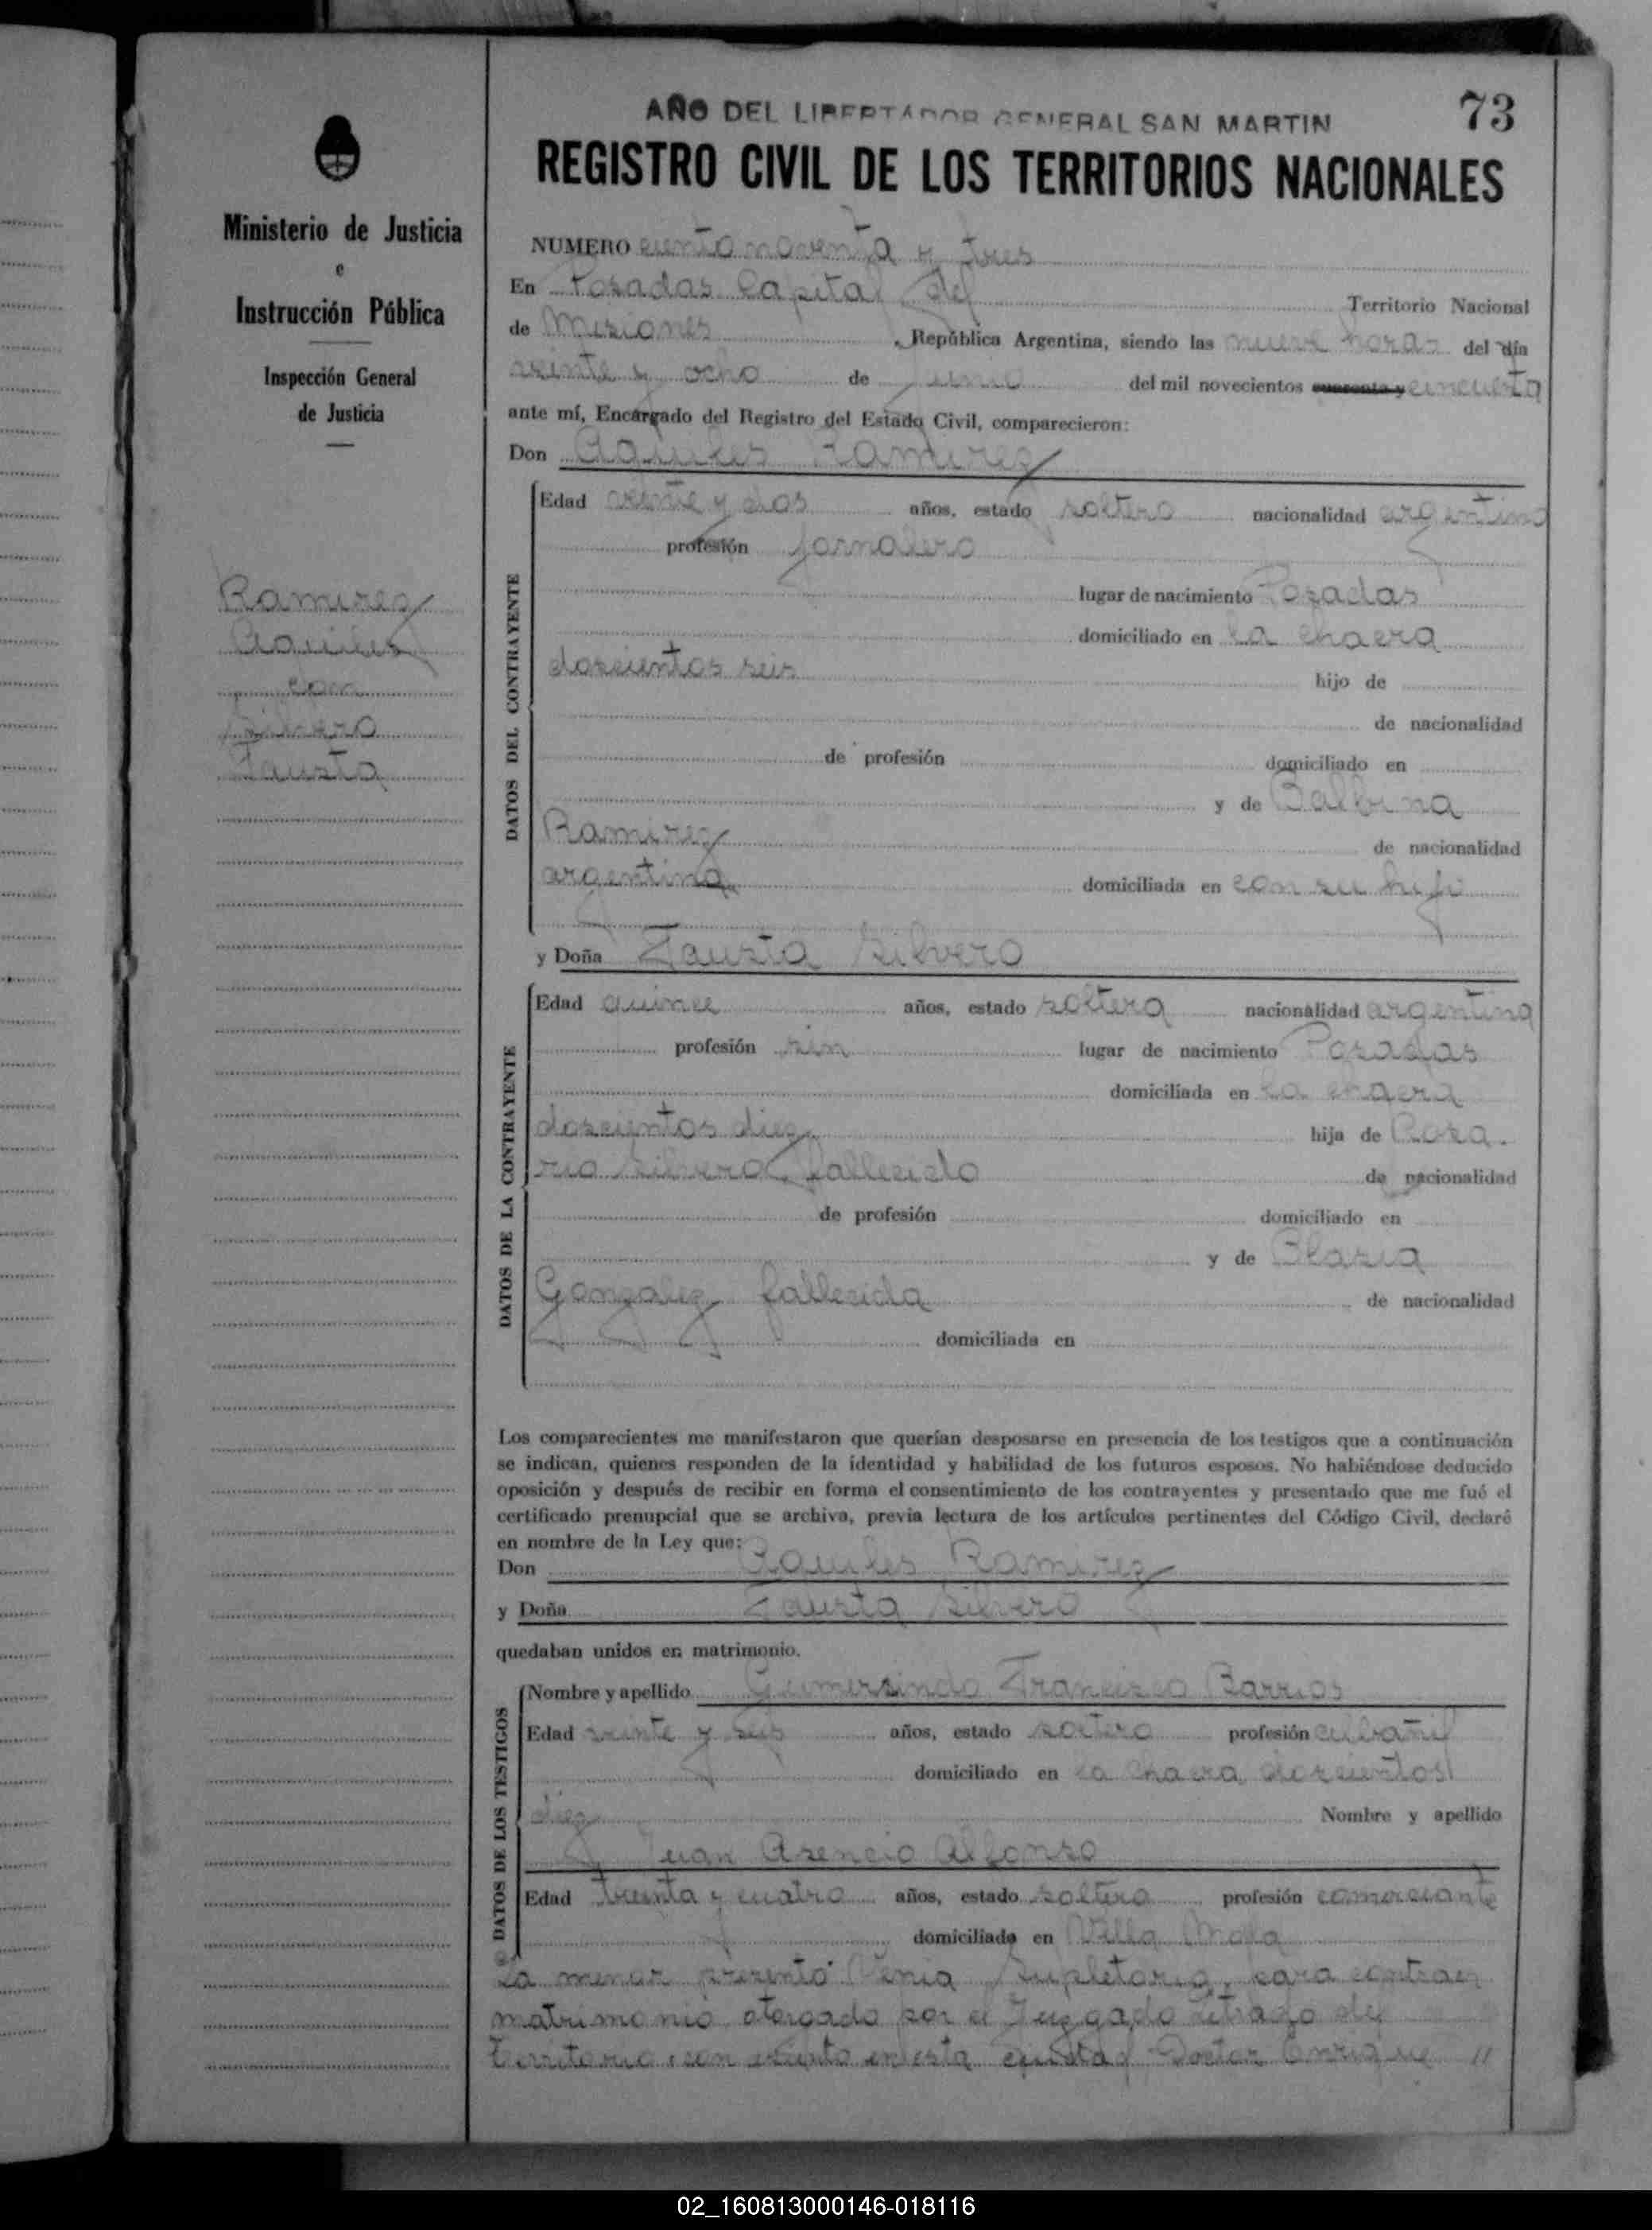 AÑO DEL LIBERTADOR GENERAL SAN MARTIN
73
REGISTRO CIVIL DE LOS TERRITORIOS NACIONALES
Ministerio de Justicia
e
Instrucción Pública
Inspección General
de Justicia
Ramirez
Aquiles
con
Silvero
Fausta
NUMERO ciento noventa y tres
En Posadas Capital del Territorio Nacional
de Misiones, República Argentina, siendo las nueve horas del día
veinte y ocho de junio del mil novecientos cuarenta y cincuenta
ante mí, Encargado del Registro del Estado Civil, comparecieron:
Don Aquiles Ramirez
DATOS DEL CONTRAYENTE
Edad veinte y dos años, estado soltero nacionalidad argentino
profesión jornalero
lugar de nacimiento Posadas
domiciliado en la chacra
doscientos seis hijo de
de nacionalidad
de profesión domiciliado en
y de Balbina
Ramirez de nacionalidad
argentina domiciliada en con su hijo
y Doña Fausta Silvero
DATOS DE LA CONTRAYENTE
Edad quince años, estado soltera nacionalidad argentina
profesión sin lugar de nacimiento Posadas
domiciliada en la chacra
doscientos diez hija de Rosa-
rio Silvero, fallecido de nacionalidad
de profesión domiciliado en
y de Blasia
Gonzalez fallecida de nacionalidad
domiciliada en
Los comparecientes me manifestaron que querían desposarse en presencia de los testigos que a continuación
se indican, quienes responden de la identidad y habilidad de los futuros esposos. No habiéndose deducido
oposición y después de recibir en forma el consentimiento de los contrayentes y presentado que me fué el
certificado prenupcial que se archiva, previa lectura de los artículos pertinentes del Código Civil, declaré
en nombre de la Ley que:
Don Aquiles Ramirez
y Doña Fausta Silvero
quedaban unidos en matrimonio.
DATOS DE LOS TESTIGOS
Nombre y apellido Gumersindo Francisco Barrios
Edad veinte y seis años, estado soltero profesión albañil
domiciliado en la chacra doscientos
diez Nombre y apellido
Juan Asencio Alfonso
Edad treinta y cuatro años, estado soltero profesión comerciante
domiciliado en Villa Mola
La menor presentó Venia Supletoria, para contraer
matrimonio otorgado por el Juzgado Letrado del
Territorio, con asiento en esta Capital Doctor Enrique //
02_160813000146-018116